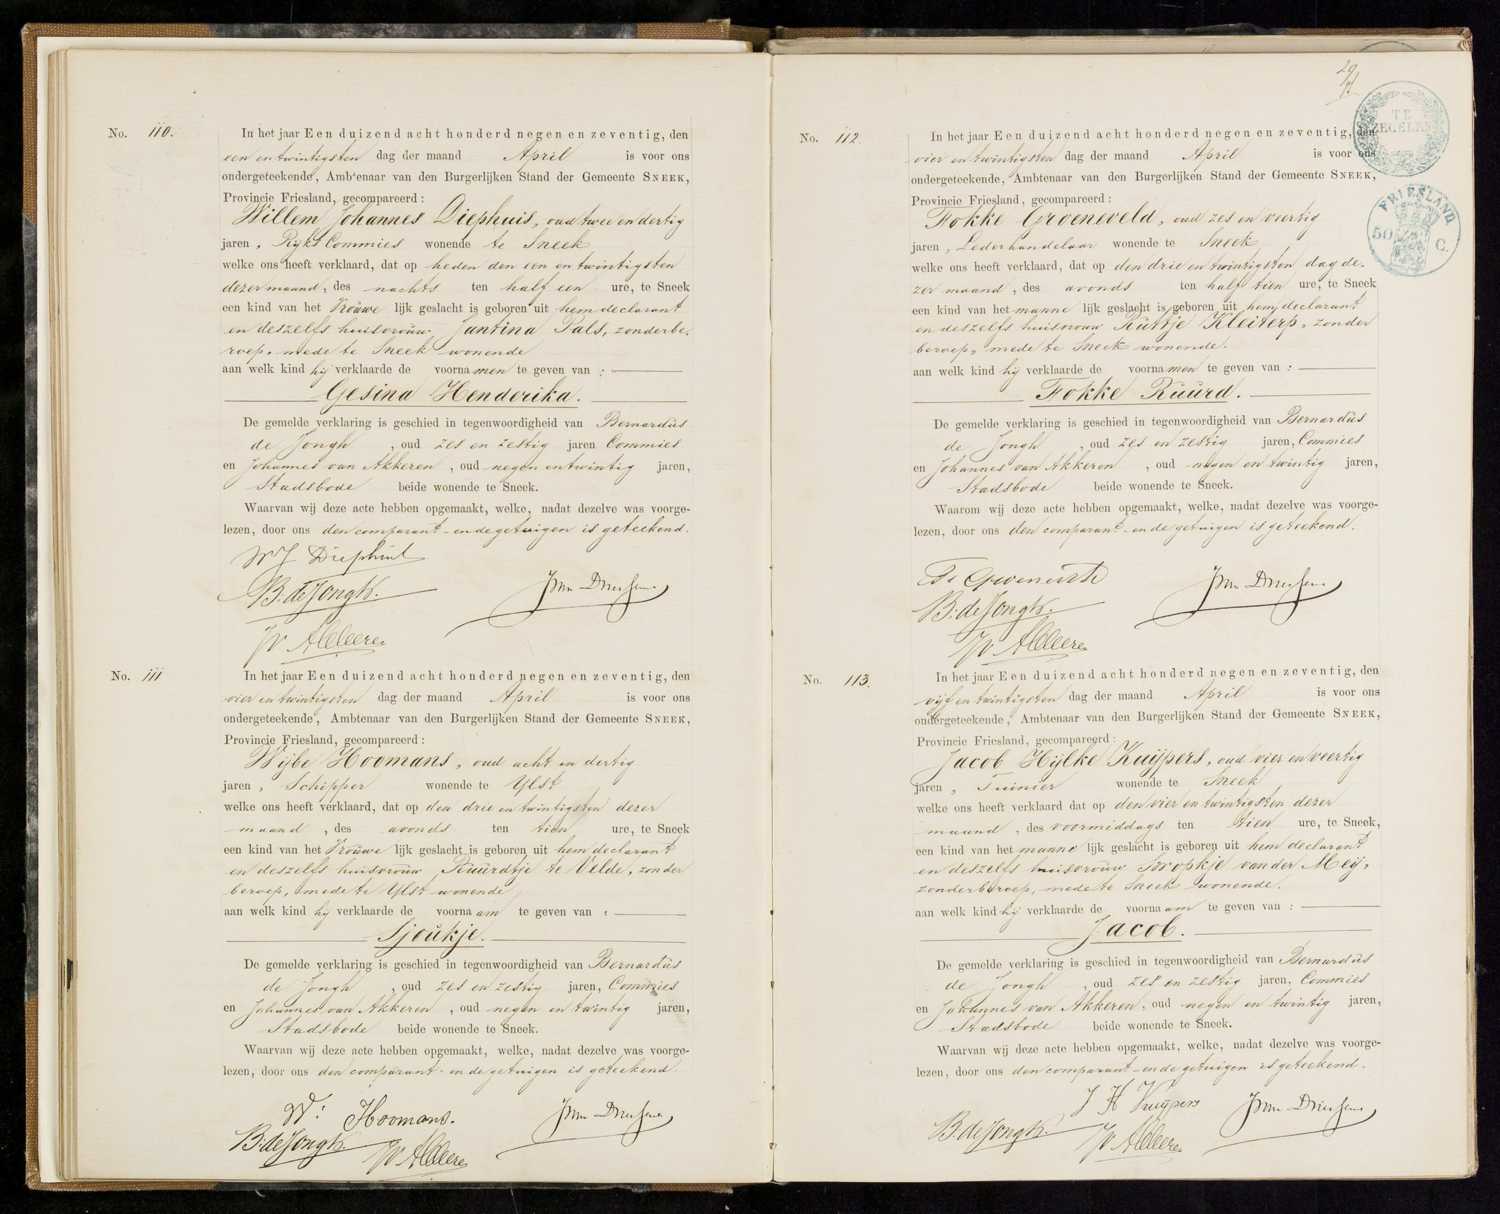 No. 110.
In het jaar Een duizend acht honderd negen en zeventig, den
een en twintigsten dag der maand April is voor ons
ondergeteekende, Ambtenaar van den Burgerlijken Stand der Gemeente SNEEK,
Provincie Friesland, gecompareerd :
Willem Johannes Diephuis, oud twee en dertig
jaren, Ryks Commies wonende te Sneek
welke ons heeft verklaard, dat op heden den een en twintigsten
dezer maand, des nachts ten half een ure, te Sneek
een kind van het Vrouwe lijk geslacht is geboren uit hem declarant
en deszelfs huisvrouw Jantina Pals, zonder be-
roep, mede te Sneek wonende
aan welk kind hij verklaarde de voornamen te geven van :
Gesina Henderika.
De gemelde verklaring is geschied in tegenwoordigheid van Bernardus
de Jongh, oud zes en zestig jaren Commies
en Johannes van Akkeren, oud negen en twintig jaren,
Stadsbode beide wonende te Sneek.
Waarvan wij deze acte hebben opgemaakt, welke, nadat dezelve was voorge-
lezen, door ons den comparant en de getuigen is geteekend.
WJ Diephuis
B. de Jongh.
JV Akkeren
No. 111
In het jaar Een duizend acht honderd negen en zeventig, den
vier en twintigsten dag der maand April is voor ons
ondergeteekende, Ambtenaar van den Burgerlijken Stand der Gemeente SNEEK,
Provincie Friesland, gecompareerd :
Wijbe Hoomans, oud acht en dertig
jaren, Schipper wonende te Ylst
welke ons heeft verklaard, dat op den drie en twintigsten dezer
maand, des avonds ten tien ure, te Sneek
een kind van het Vrouwe lijk geslacht is geboren uit hem declarant
en deszelfs huisvrouw Ruurdtje te Velde, zonder
beroep, mede te Ylst wonende
aan welk kind hij verklaarde de voornaam te geven van :
Sjoukje.
De gemelde verklaring is geschied in tegenwoordigheid van Bernardus
de Jongh, oud zes en zestig jaren, Commies
en Johannes van Akkeren, oud negen en twintig jaren,
Stadsbode beide wonende te Sneek.
Waarvan wij deze acte hebben opgemaakt, welke, nadat dezelve was voorge-
lezen, door ons den comparant en de getuigen is geteekend.
W: Hoomans.
B. de Jongh
JV Akkeren
29
TE
ZEGELEN
FRIESLAND
50 C.
No. 112.
In het jaar Een duizend acht honderd negen en zeventig, den
vier en twintigsten dag der maand April is voor ons
ondergeteekende, Ambtenaar van den Burgerlijken Stand der Gemeente SNEEK,
Provincie Friesland, gecompareerd :
Fokke Groeneveld, oud zes en veertig
jaren, Lederhandelaar wonende te Sneek
welke ons heeft verklaard, dat op den drie en twintigsten dag de-
zer maand, des avonds ten half tien ure, te Sneek
een kind van het manne lijk geslacht is geboren uit hem declarant
en deszelfs huisvrouw Ruttje Kleiterp, zonder
beroep, mede te Sneek wonende.
aan welk kind hij verklaarde de voornamen te geven van :
Fokke Ruurd.
De gemelde verklaring is geschied in tegenwoordigheid van Bernardus
de Jongh, oud zes en zestig jaren, Commies
en Johannes van Akkeren, oud negen en twintig jaren,
Stadsbode beide wonende te Sneek.
Waarom wij deze acte hebben opgemaakt, welke, nadat dezelve was voorge-
lezen, door ons den comparant en de getuigen is geteekend.
B. de Jongh.
JV Akkeren
No. 113.
In het jaar Een duizend acht honderd negen en zeventig, den
vijf en twintigsten dag der maand April is voor ons
ondergeteekende, Ambtenaar van den Burgerlijken Stand der Gemeente SNEEK,
Provincie Friesland, gecompareerd :
Jacob Hijlke Kuijpers, oud vier en veertig
jaren, Tuinier wonende te Sneek
welke ons heeft verklaard dat op den vier en twintigsten dezer
maand, des voormiddags ten tien ure, te Sneek,
een kind van het manne lijk geslacht is geboren uit hem declarant
en deszelfs huisvrouw Froukje van der Meij,
zonder beroep, mede te Sneek wonende.
aan welk kind hij verklaarde de voornaam te geven van :
Jacob.
De gemelde verklaring is geschied in tegenwoordigheid van Bernardus
de Jongh, oud zes en zestig jaren, Commies
en Johannes van Akkeren, oud negen en twintig jaren,
Stadsbode beide wonende te Sneek.
Waarvan wij deze acte hebben opgemaakt, welke, nadat dezelve was voorge-
lezen, door ons den comparant en de getuigen is geteekend.
J H Kuijpers
B. de Jongh
JV Akkeren